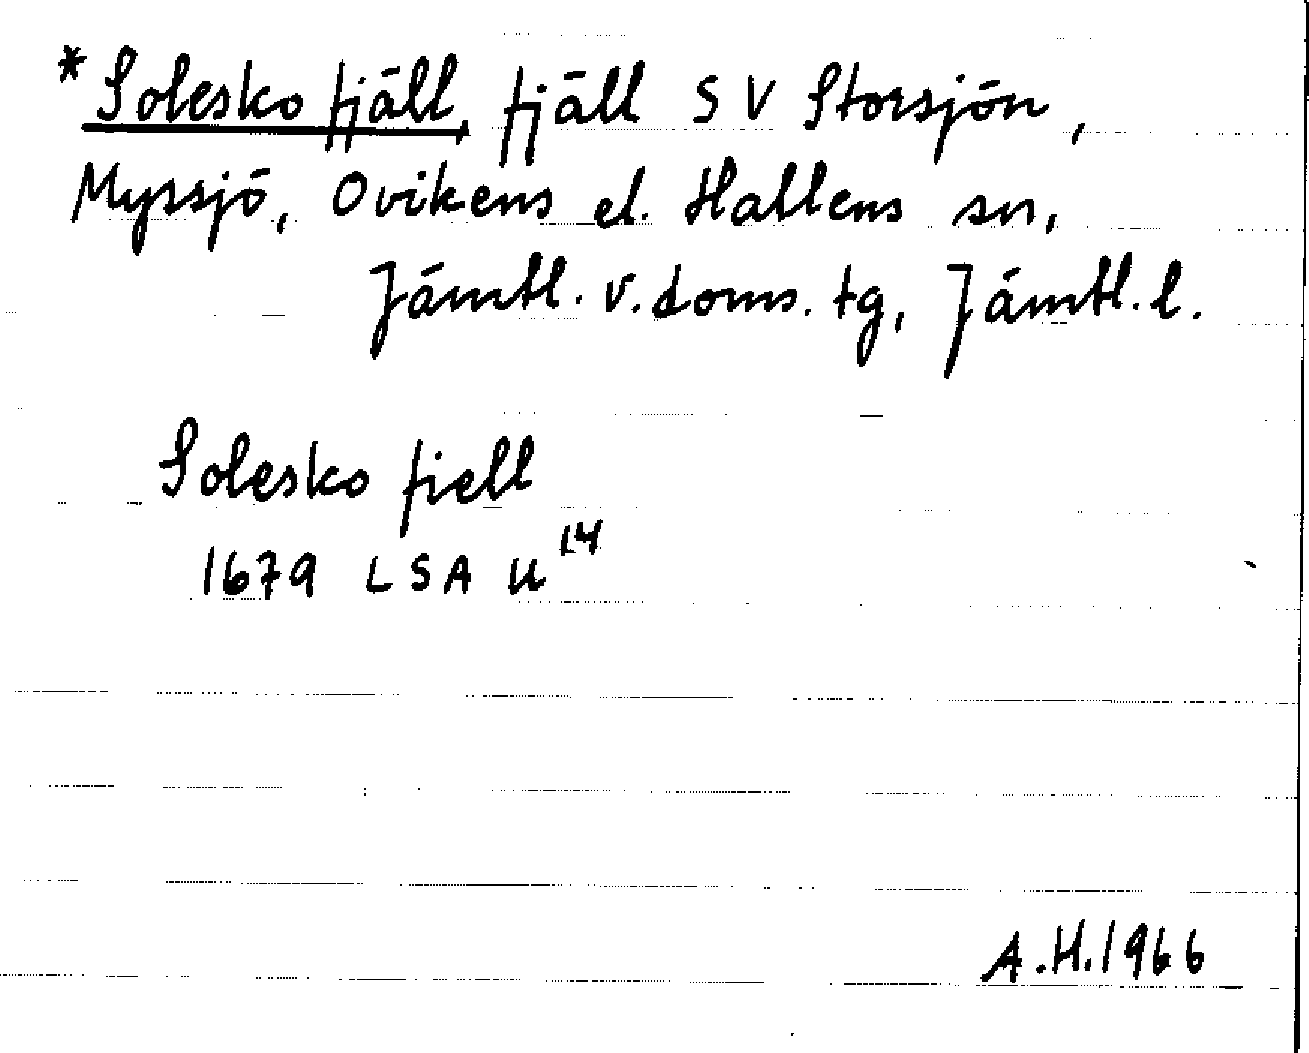 *Solesko fjäll, fjäll SV Storsjön,
Myssjö, Ovikens el. Hallens sn,
Jämtl. v. doms. tg, Jämtl. l.
Solesko fiell
1679 LSA U 14
A.H. 1966